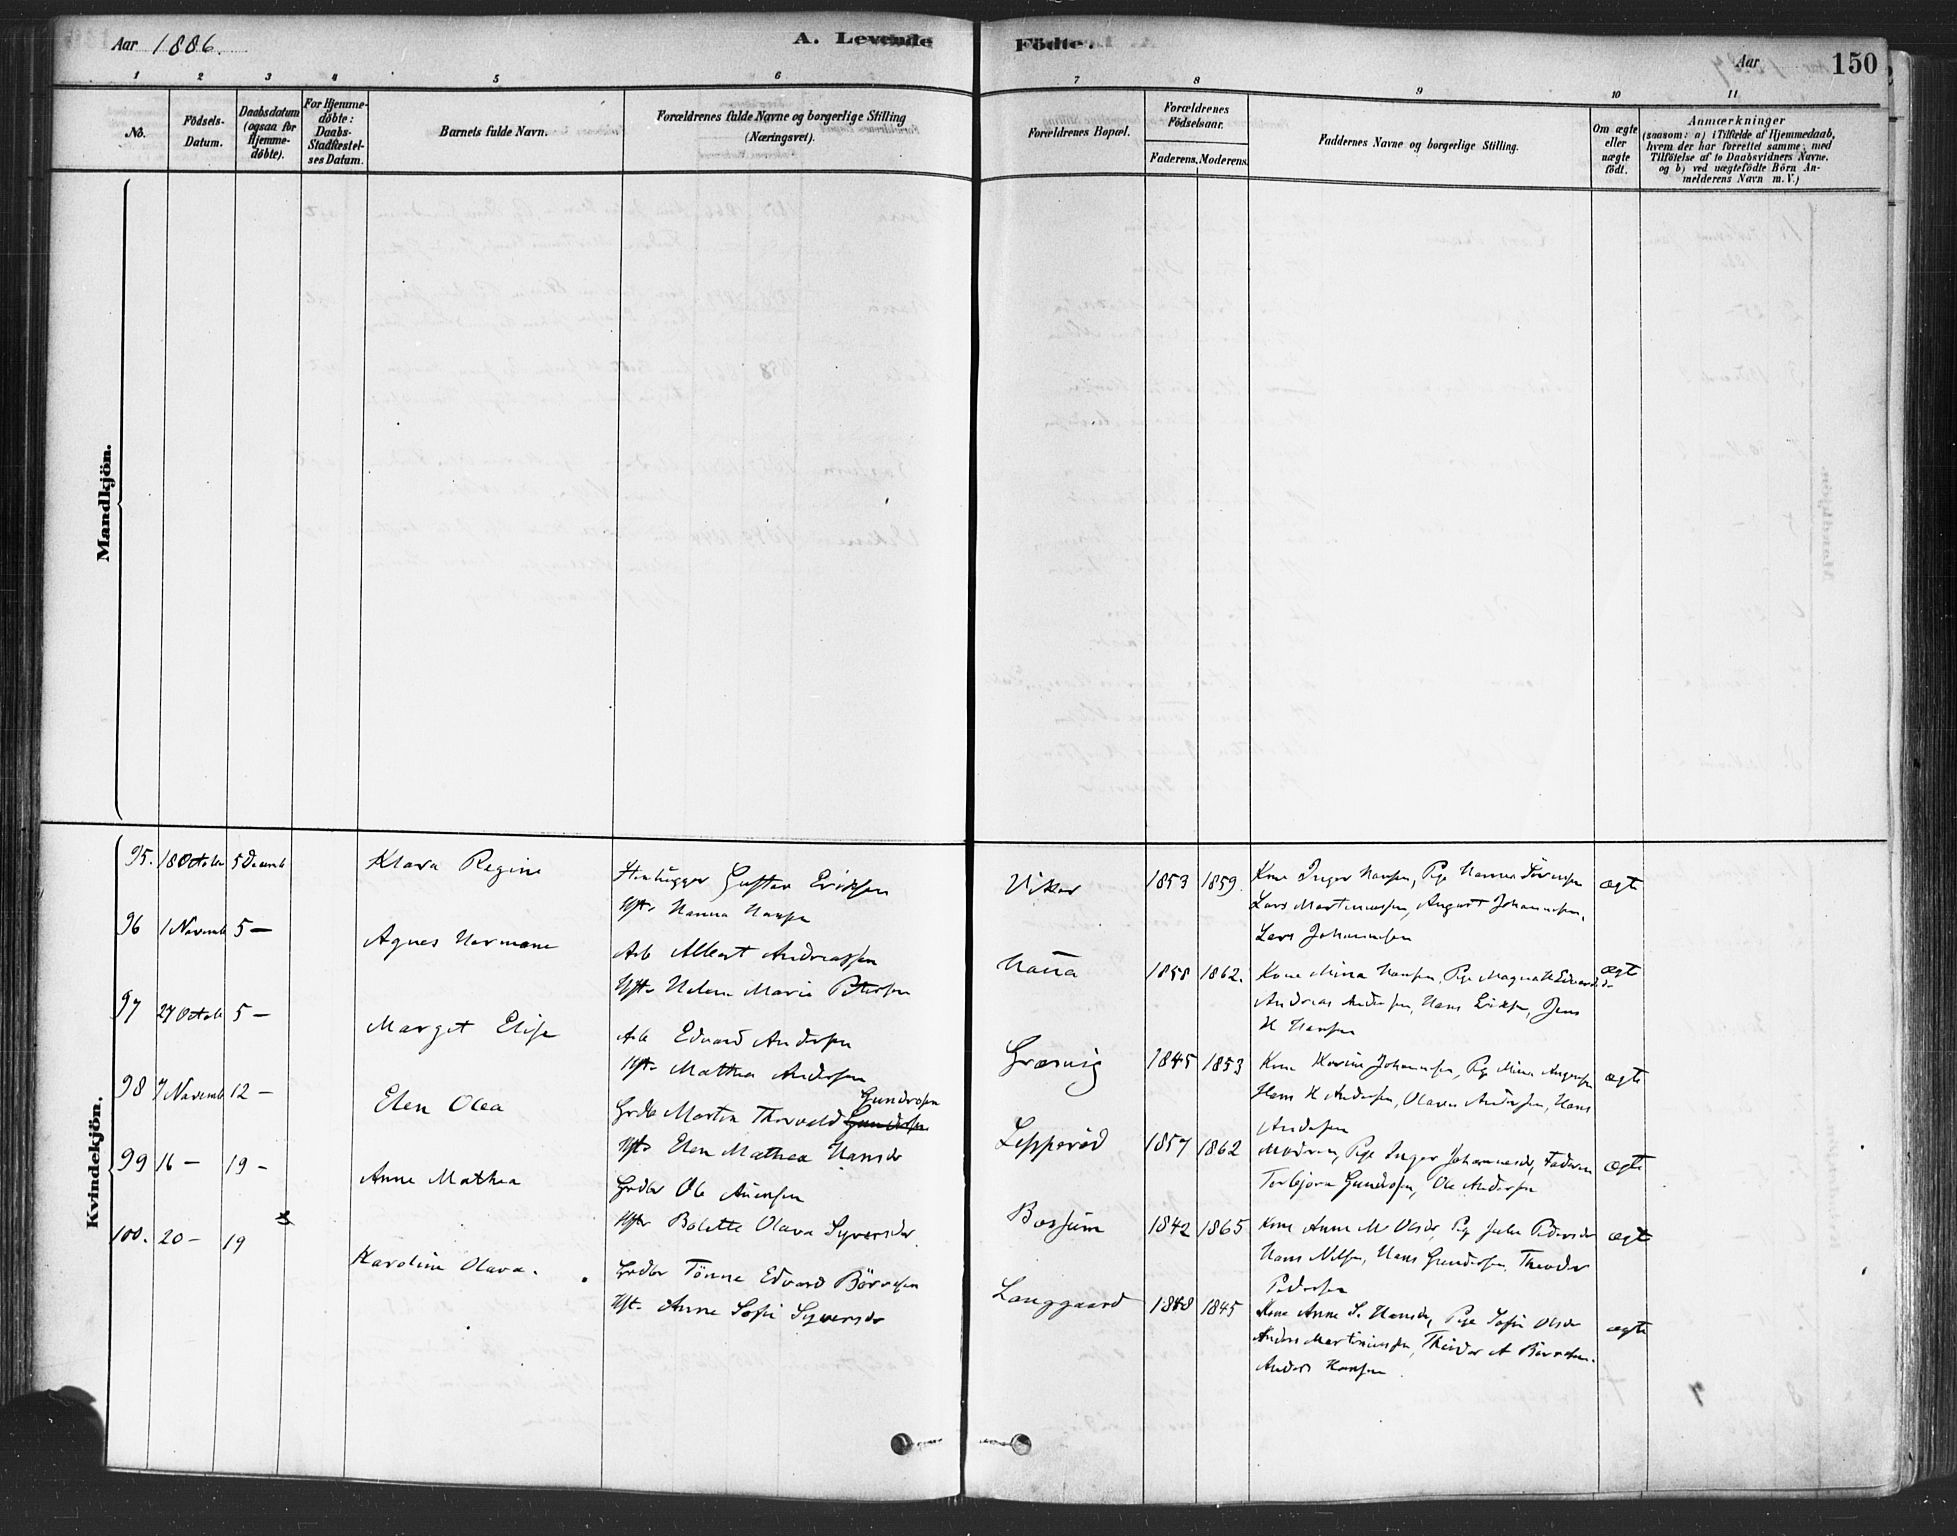 Aar 1886.
A. Levende
Födte.
Aar
150
1 2 3 4 5 6 7 8 9 10 11
No.
Födsels-Datum.
Daabsdatum (ogsaa for Hjemme-döbte).
For Hjemme-döbte: Daabs-Stadfæstel-ses Datum.
Barnets fulde Navn.
Forældrenes fulde Navne og borgerlige Stilling (Næringsvei).
Forældrenes Bopæl.
Forældrenes Födselsaar.
Faderens. Moderens.
Faddernes Navne og borgerlige Stilling.
Om ægte eller uægte födt.
Anmærkninger
(saasom: a) i Tilfælde af Hjemmedaab,
hvem der har forrettet samme, med
Tilföielse af to Daabsvidners Navne.
og b) ved uægtefödte Börn An-
melderens Navn m. V.)
Mandkjön.
Kvindekjön.
95. 18 Octobr 5 Decemb Klara Regine Stenhugger Gustav Eriksen
Hst. Hanna Hansen
Viker 1853 1859. Kone Inger Hansen, Pige Hanna Sörensen ægte
Lars Martinussen, August Johannesen,
Lars Johannesen
96 1 Novemb 5 — Agnes Hermane Arb Albert Andreassen
Hst. Helene Marie Petersen
Haua 1858 1862. Kone Mina Hansen, Pige Magnhild Edvardsdr ægte
Andreas Andersen, Hans Eriksen, Jens
H Hansen
97 27 Octob 5 — Margit Elise Arb Edvard Andersen
Hst. Mathea Andersen
Græsvig 1845 1853 Kone Karine Johannesen, Pig Mina Augensen ægte
Hans H Andersen, Olaves Andersen, Hans
Andersen
98 7 Novemb 12 — Elen Olea Grdbr Martin Thorvald Gundersen
Hst. Elen Mathea Hansdr
Lepperöd 1857 1862 Moderen, Pige Inger Johannesdr, Faderen ægte
Torbjörn Gundersen, Ole Andersen
99 16 — 19 — Anne Mathea Grdbr Ole Auensen
Hst. Bolette Olava Syversdr
Borjum 1842 1865 Kone Anne M Olsdr, Pig Julie Pedersdr ægte
Hans Nilsen, Hans Gundersen, Theodor
Pedersen
100. 20 — 19 Karoline Olava. Grdbr Tönne Edvard Börresen
Hst. Anne Sofie Syversdr
Langgaard 1848 1845 Kone Anne S. Hansdr, Pige Sofie Olsdr ægte
Anders Martiniussen, Theodor A Börresen.
Anders Hansen